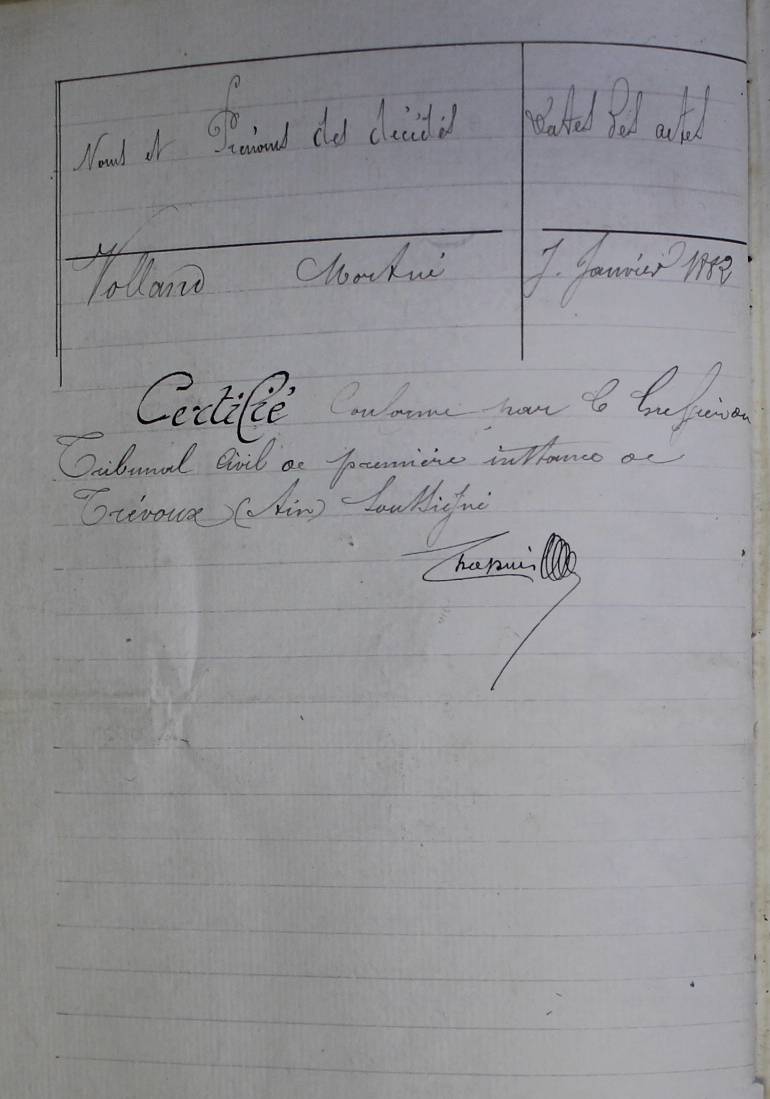 Noms et Prénoms des décédés Dates des actes
Volland Mort Né 7. Janvier 1882
Certifié Conforme par le Greffier du
Tribunal Civil de première instance de
Trévoux (Ain) Soussigné
Chapuis